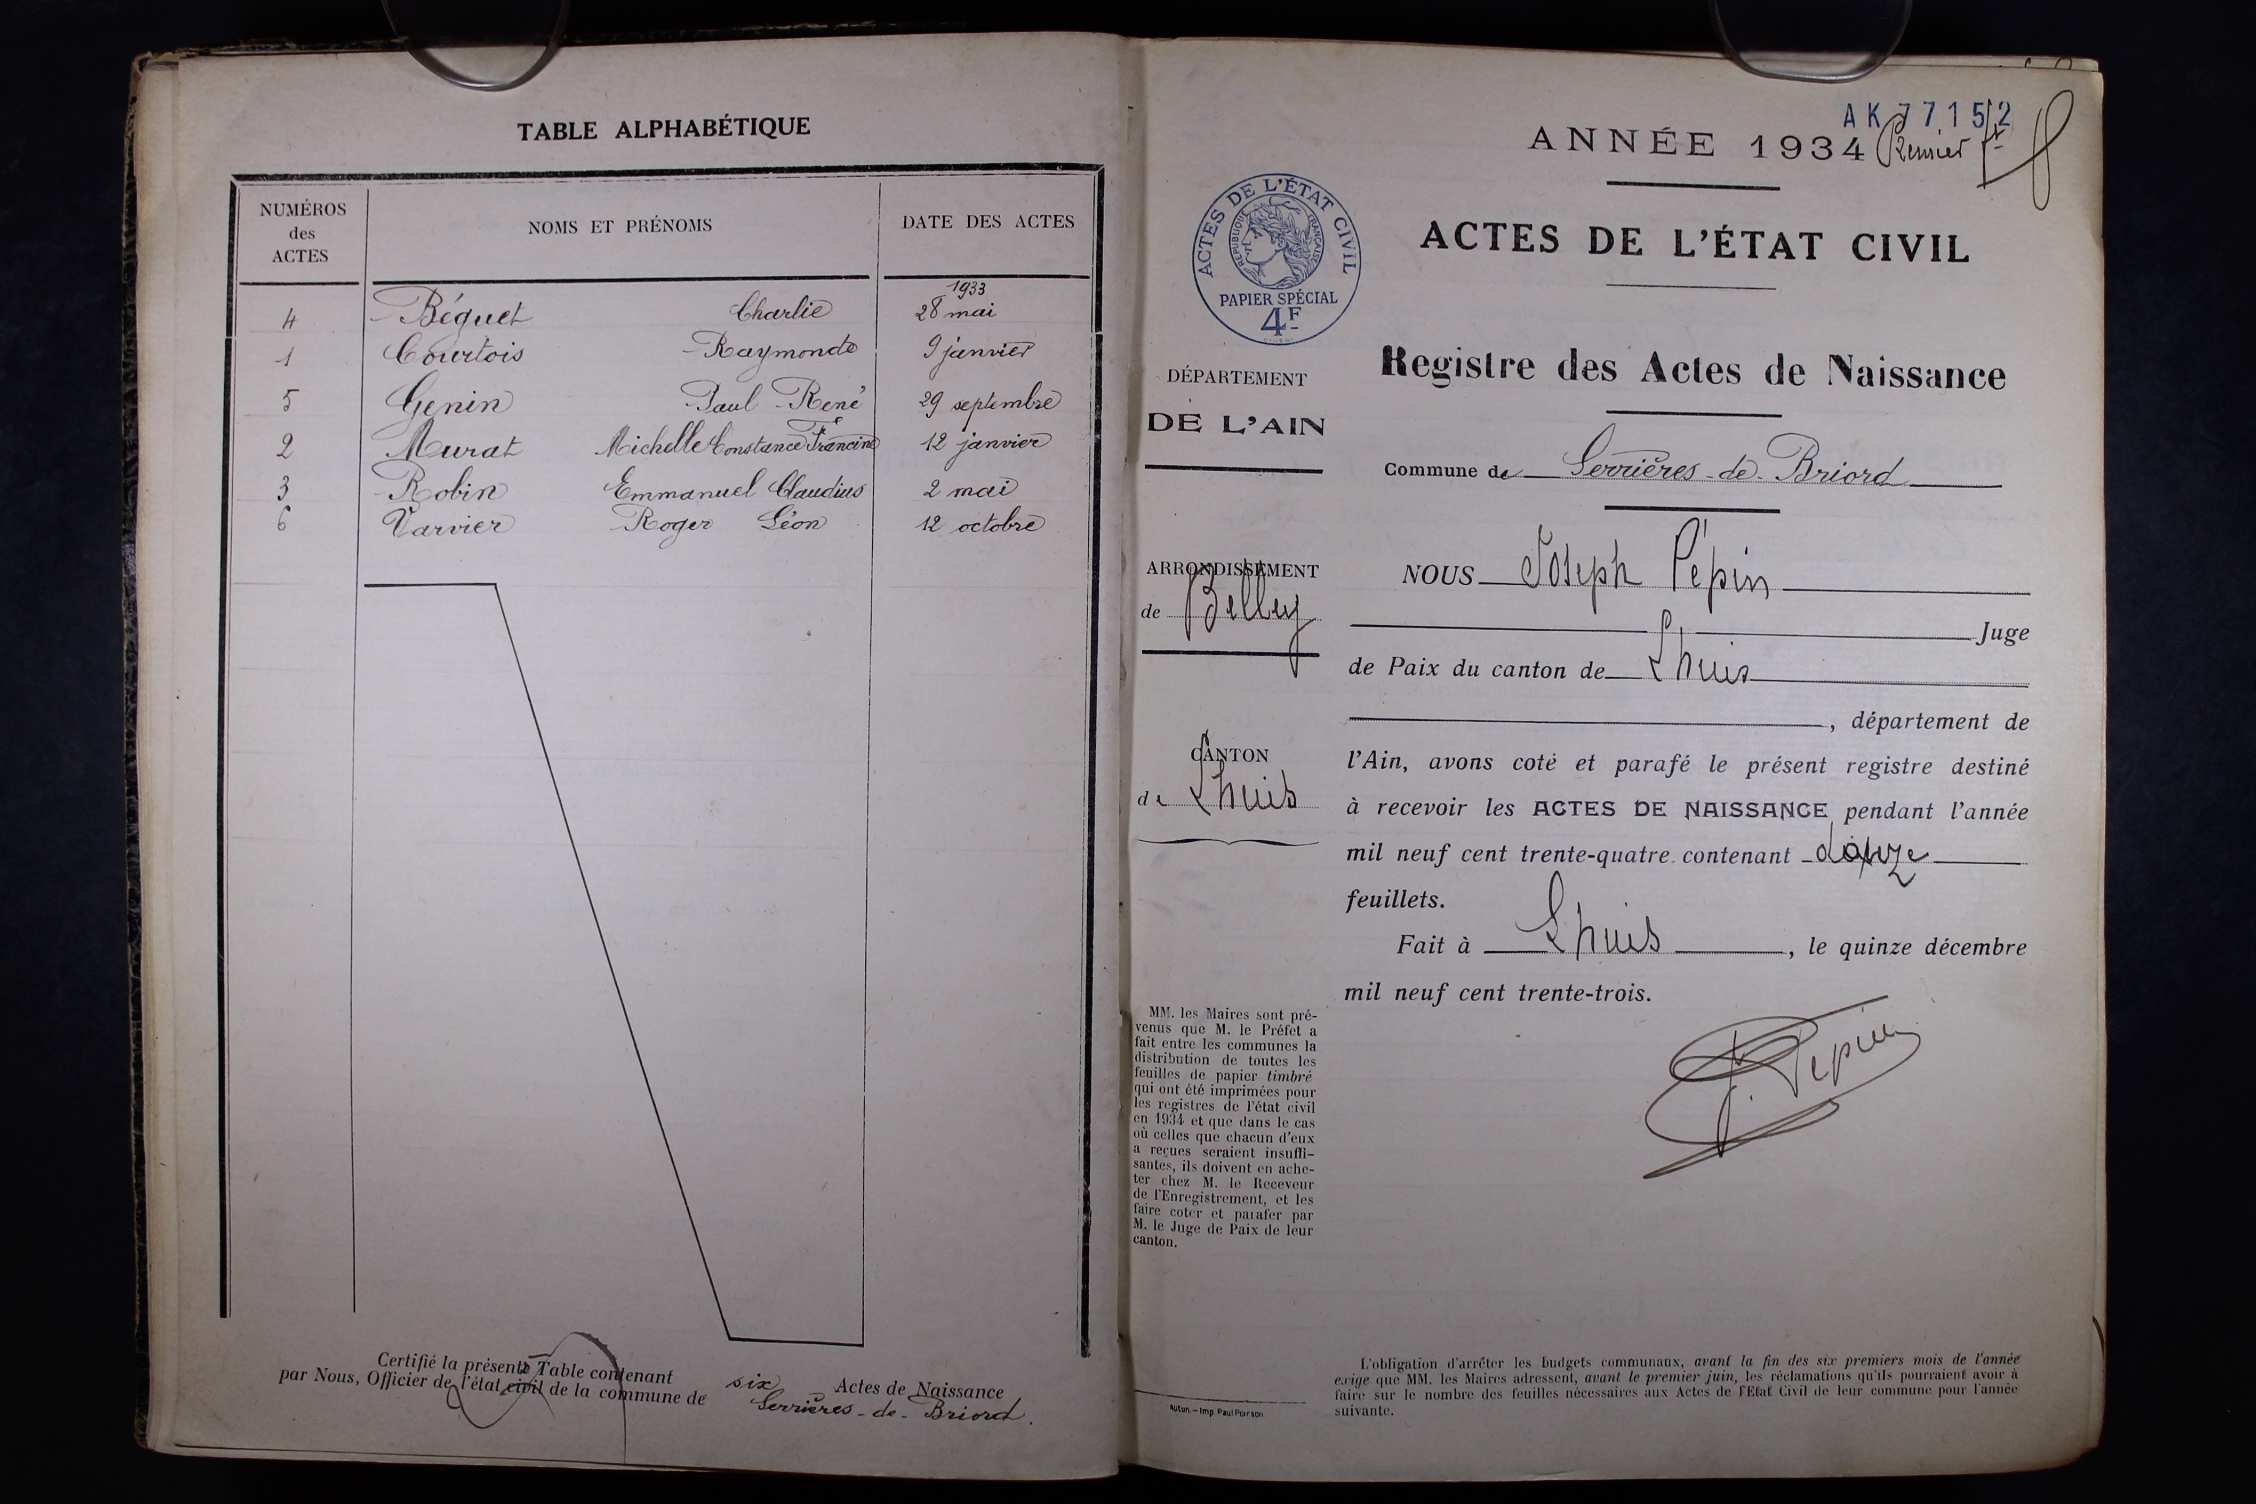 TABLE ALPHABÉTIQUE
NUMÉROS
des
ACTES
NOMS ET PRÉNOMS
DATE DES ACTES
1933
4 Béguet Charlie 28 mai
1 Courtois Raymonde 9 janvier
5 Genin Paul René 29 septembre
2 Murat Michelle Constance Francine 12 janvier
3 Robin Emmanuel Claudius 2 mai
6 Varvier Roger Léon 12 octobre
Certifié la présente Table contenant six Actes de Naissance
par Nous, Officier de l'état civil de la commune de Serrières-de-Briord.
AK77152
ANNÉE 1934 Premier ft
ACTES DE L'ÉTAT CIVIL
ACTES DE L'ÉTAT CIVIL
RÉPUBLIQUE FRANÇAISE
PAPIER SPÉCIAL
4F
DÉPARTEMENT
DE L'AIN
ARRONDISSEMENT
de Belley
CANTON
de Lhuis
MM. les Maires sont pré-
venus que M. le Préfet a
fait entre les communes la
distribution de toutes les
feuilles de papier timbré
qui ont été imprimées pour
les registres de l'état civil
en 1934 et que dans le cas
où celles que chacun d'eux
a reçues seraient insuffi-
santes, ils doivent en ache-
ter chez M. le Receveur
de l'Enregistrement, et les
faire coter et parafer par
M. le Juge de Paix de leur
canton.
Autun. — Imp. Paul Poirson
Registre des Actes de Naissance
Commune de Serrières-de-Briord
NOUS Joseph Pépin
Juge
de Paix du canton de Lhuis
, département de
l'Ain, avons coté et parafé le présent registre destiné
à recevoir les ACTES DE NAISSANCE pendant l'année
mil neuf cent trente-quatre contenant
feuillets.
Fait à Lhuis, le quinze décembre
mil neuf cent trente-trois.
J. Pépin
L'obligation d'arrêter les budgets communaux, avant la fin des six premiers mois de l'année
exige que MM. les Maires adressent, avant le premier juin, les réclamations qu'ils pourraient avoir à
faire sur le nombre des feuilles nécessaires aux Actes de l'Etat Civil de leur commune pour l'année
suivante.